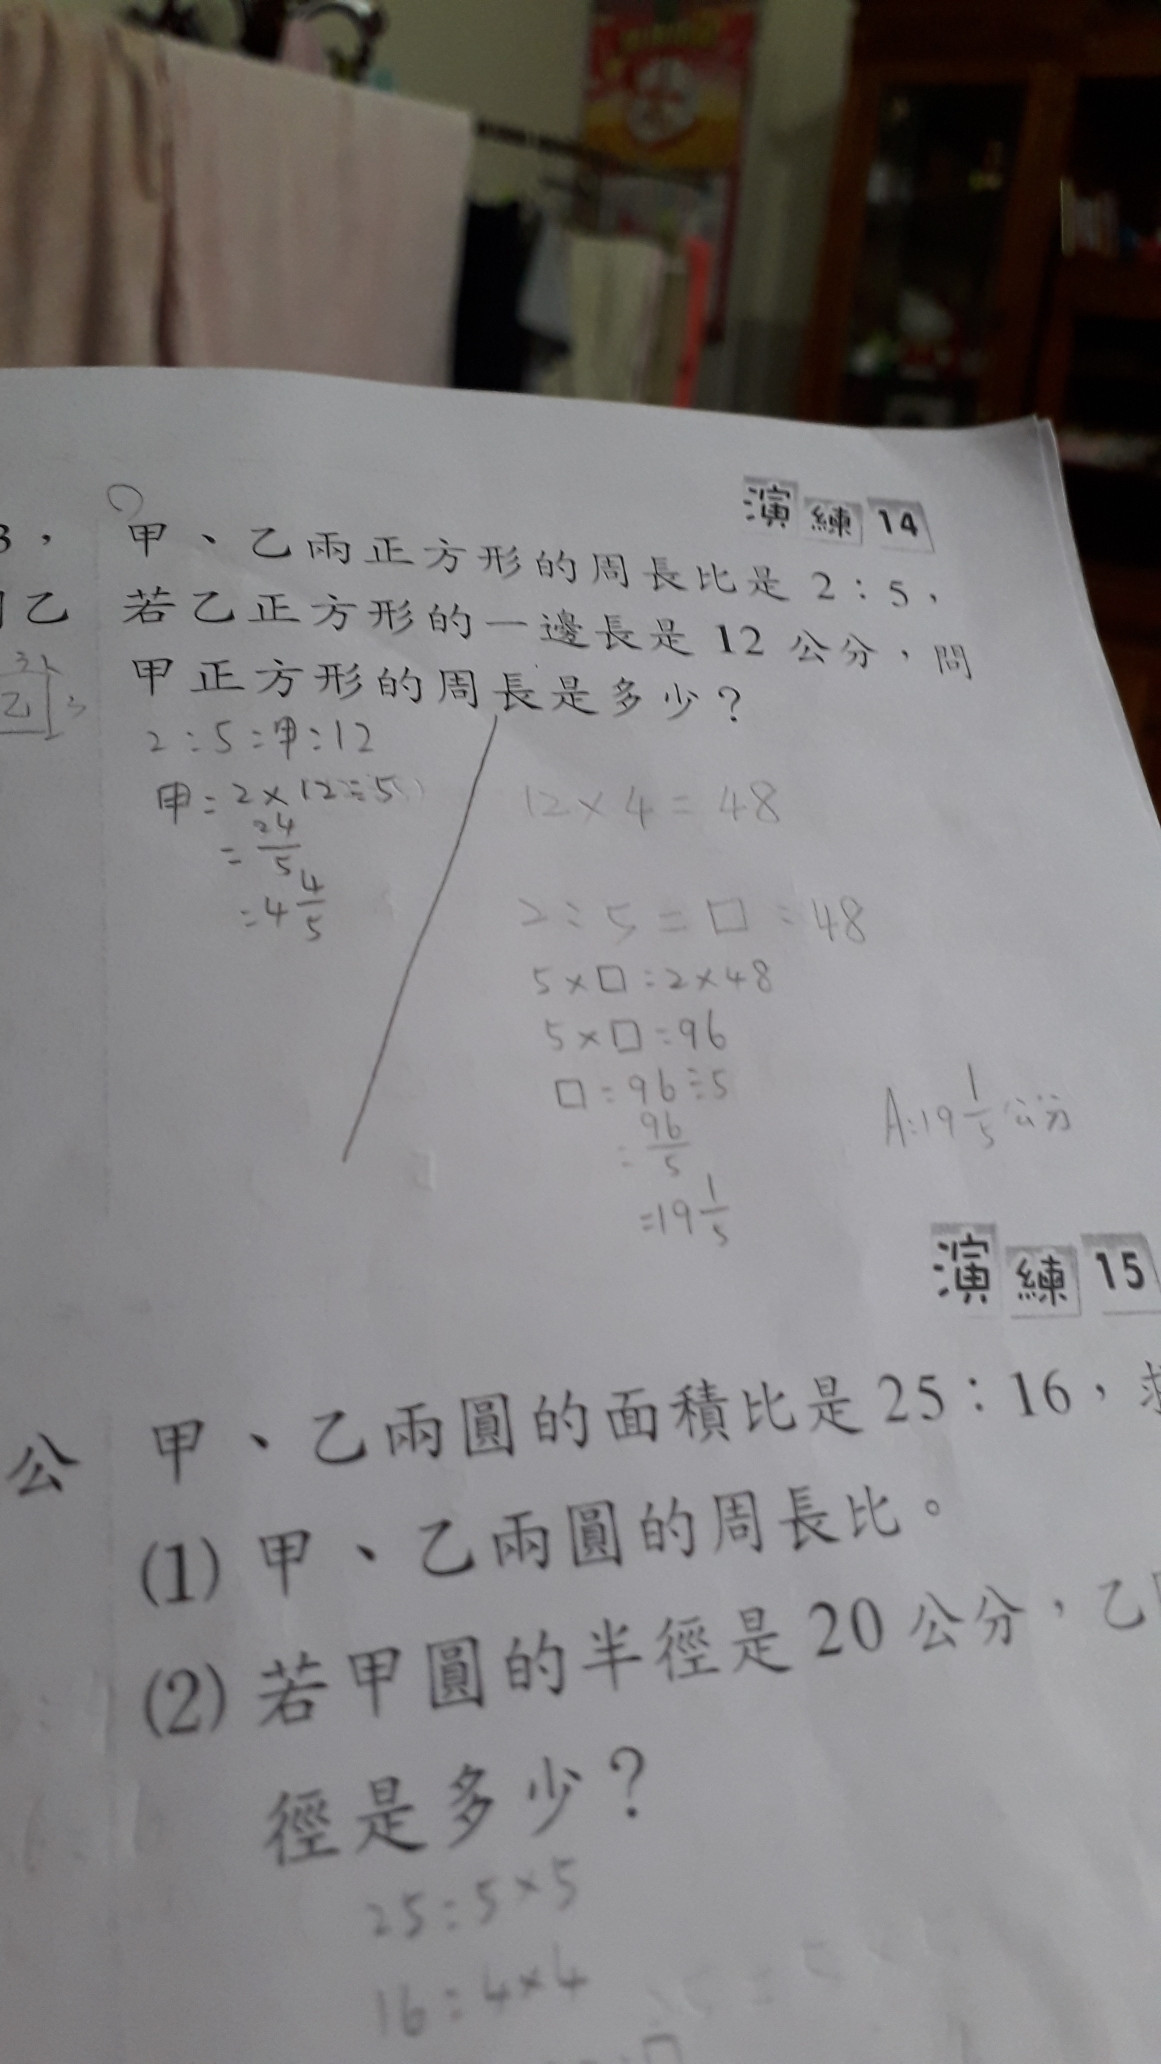 演練14
3，
甲、乙兩正方形的周長比是 2：5，
乙
若乙正方形的一邊長是 12 公分，問
甲正方形的周長是多少？
乙
3
2:5=甲:12
甲=2×12÷5
=24/5
=4 4/5
12×4=48
2:5=□:48
5×□=2×48
5×□=96
□=96÷5
=96/5
=19 1/5
A:19 1/5 公分
演練15
公
甲、乙兩圓的面積比是 25：16，
(1) 甲、乙兩圓的周長比。
(2) 若甲圓的半徑是 20 公分，乙
徑是多少？
25=5×5
16=4×4